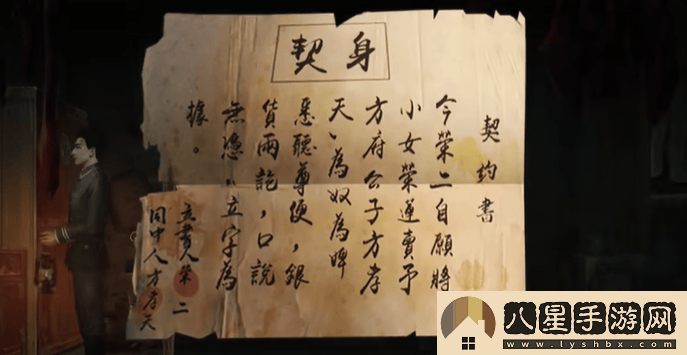 身契
契约書
今榮二自願將
小女榮蓮賣予
方府公子方孝
天，為奴為婢
悉聽尊便，銀
貨兩訖，口說
無憑，立字為
據。
立書人榮二
同中人方孝天
八星手游网
www.lyshbx.com